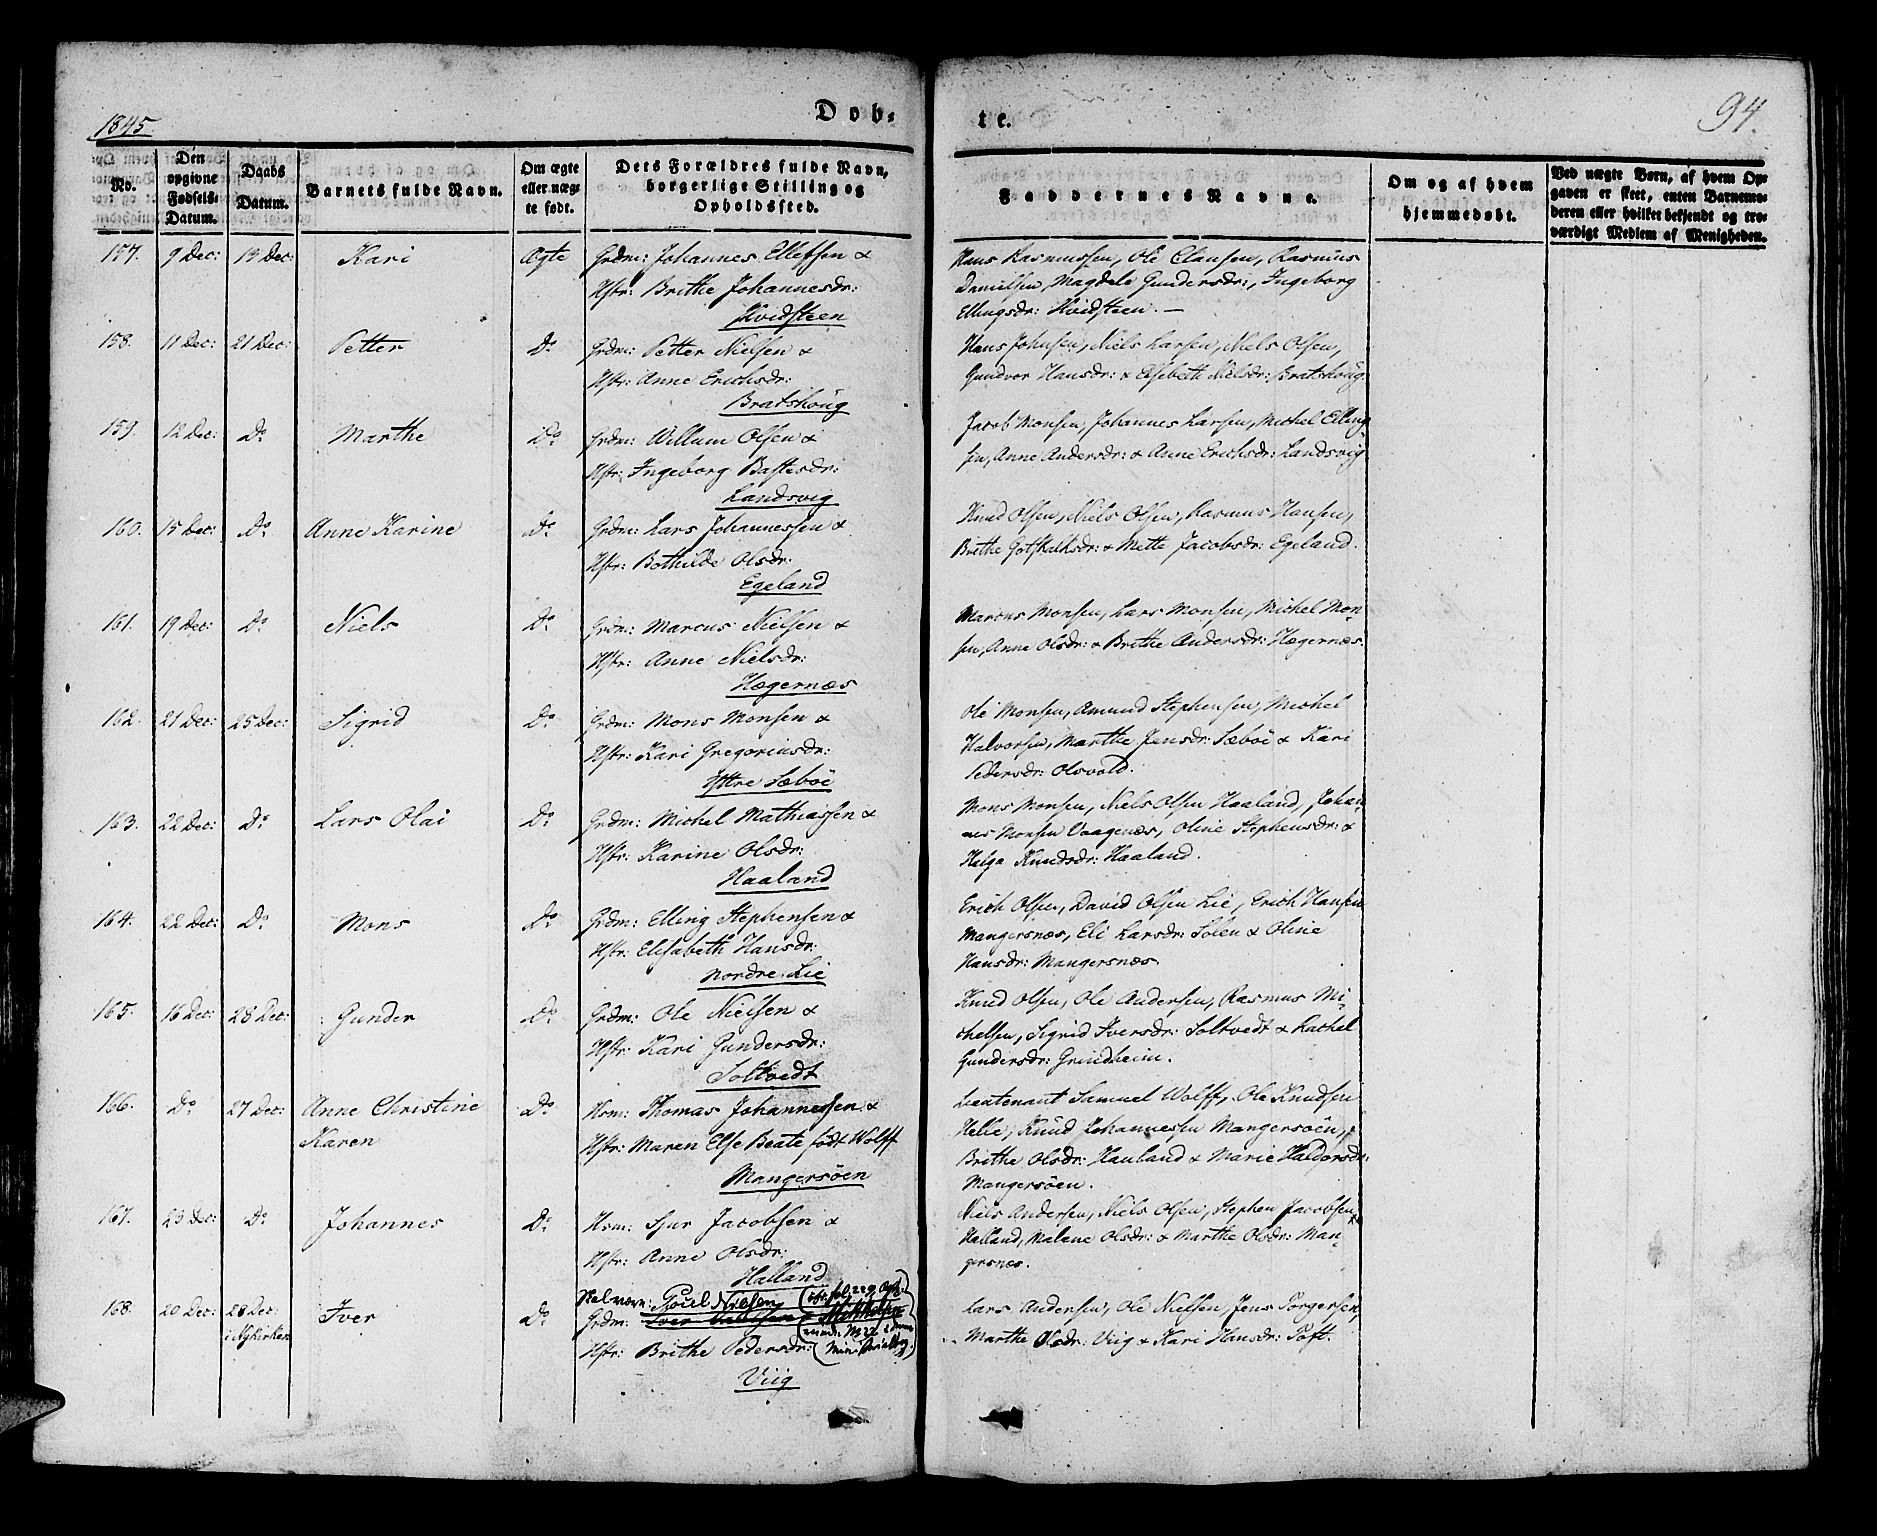 1845
Døb-
te.
94.
No.
Den
opgivne
Fødsels-
Datum.
Daabs
Datum.
Barnets fulde Navn.
Om ægte
eller uæg-
te født.
Dets Forældres fulde Navn,
borgerlige Stilling og
Opholdssted.
Faddernes Navne.
Om og af hvem
hjemmedøbt.
Ved uægte Børn, af hvem Op-
gaven er skeet, enten Barnemo-
deren eller hvilket bekjendt og tro-
værdigt Medlem af Menigheden.
157. 9 Dec: 19 Dec: Kari Ægte Grdm: Johannes Ellefsen &
Hstr: Brithe Johannesdr:
Hvidsteen
Hans Rasmussen, Ole Clausen, Rasmus
Danielsen, Magdele Gundersdr:, Ingeborg
Ellingsdr: Hvidsteen. —
158. 11 Dec: 21 Dec: Petter Do Grdm: Petter Nielsen &
Hstr: Anne Erichsdr:
Bratshoug
Hans Johnsen, Niels Larsen, Niels Olsen,
Gundvor Hansdr: & Elsebeth Nielsdr: Bratshoug.
159. 12 Dec: Do Marthe Do Grdm: Willum Olsen &
Hstr: Ingeborg Bastesdr:
Landsvig
Jacob Monsen, Johannes Larsen, Michel Elling-
sen, Anne Andersdr: & Anne Erichsdr: Landsvig
160. 15 Dec: Do Anne Karine Do Grdm: Lars Johannessen &
Hstr: Bothilde Olsdr:
Egeland
Knud Olsen, Niels Olsen, Rasmus Hansen,
Brithe Gotskalksdr: & Mette Jacobsdr: Egeland.
161. 19 Dec: Do Niels Do Grdm: Marcus Nielsen &
Hstr: Anne Nielsdr:
Hægernæs
Marcus Monsen, Lars Monsen, Michel Mon-
sen, Anne Olsdr: & Brithe Andersdr: Hægernæs.
162. 21 Dec: 25 Dec: Sigrid Do Grdm: Mons Monsen &
Hstr: Kari Gregoriusdr:
Yttre Sæbøe
Ole Monsen, Amund Stephensen, Michel
Halvorsen, Marthe Jensdr: Sæbøe & Kari
Pedersdr: Olsvold.
163. 22 Dec: Do Lars Olai Do Grdm: Michel Mathiassen &
Hstr: Karine Olsdr:
Haaland
Mons Monsen, Niels Olsen Haaland, Johan-
nes Monsen Vaagenæs, Oline Stephensdr: &
Helga Knudsdr: Haaland.
164. 22 Dec: Do Mons Do Grdm: Elling Stephensen &
Hstr: Elisabeth Hansdr:
Nordre Lie
Erich Olsen, David Olsen Lie, Erich Hansen
Mangersnæs, Eli Larsdr: Solen & Oline
Hansdr: Mangersnæs.
165. 16 Dec: 28 Dec: Gunder Do Grdm: Ole Nielsen &
Hstr: Kari Gundersdr:
Soltvedt
Knud Olsen, Ole Andersen, Rasmus Mi-
chelsen, Sigrid Iversdr: Soltvedt & Rachel
Gundersdr: Grindheim.
166. Do 27 Dec: Anne Christine
Karen
Do Hsm: Thomas Johannessen &
Hstr: Maren Else Beate født Wolff
Mangersøen
Lieutenant Samuel Wolff, Ole Knudsen
Helle, Knud Johannessen Mangersøen,
Brithe Olsdr: Hauland & Marie Haldorsdr:
Mangersøen.
167. 23 Dec: Do Johannes Do Hsm: Sjur Jacobsen &
Hstr: Anne Olsdr:
Halland
Niels Andersen, Niels Olsen, Stephen Jacobsen
Halland, Malene Olsdr: & Marthe Olsdr: Man-
gersnæs.
168. 20 Dec: 28 Dec:
i Nykirken
Iver Do
Skal være: Poul Nielsen
Grdm:
Hstr: Brithe Pedersdr:
Viig
Lars Andersen, Ole Nielsen, Jens Torgersen,
Marthe Olsdr: Viig & Kari Hansdr: Toft.